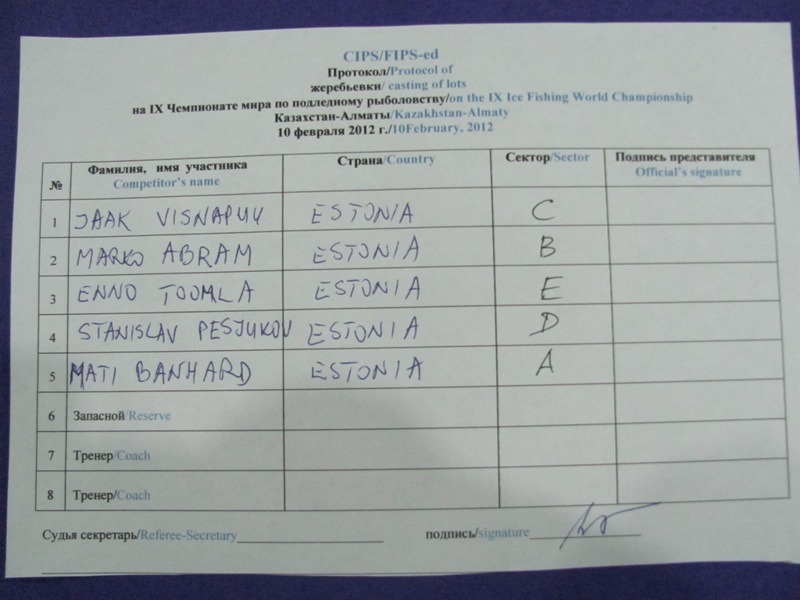 CIPS/FIPS-ed
Протокол/Protocol of
жеребьевки/ casting of lots
на IX Чемпионате мира по подледному рыболовству/on the IX Ice Fishing World Championship
Казахстан-Алматы/Kazakhstan-Almaty
10 февраля 2012 г./10February, 2012
№ Фамилия, имя участника Страна/Country Сектор/Sector Подпись представителя
Competitor's name Official's signature
1 JAAK VISNAPUU ESTONIA C
2 MARKO ABRAM ESTONIA B
3 ENNO TOOMLA ESTONIA E
4 STANISLAV PESJUKOV ESTONIA D
5 MATI BANHARD ESTONIA A
6 Запасной/Reserve
7 Тренер/Coach
8 Тренер/Coach
Судья секретарь/Referee-Secretary подпись/signature